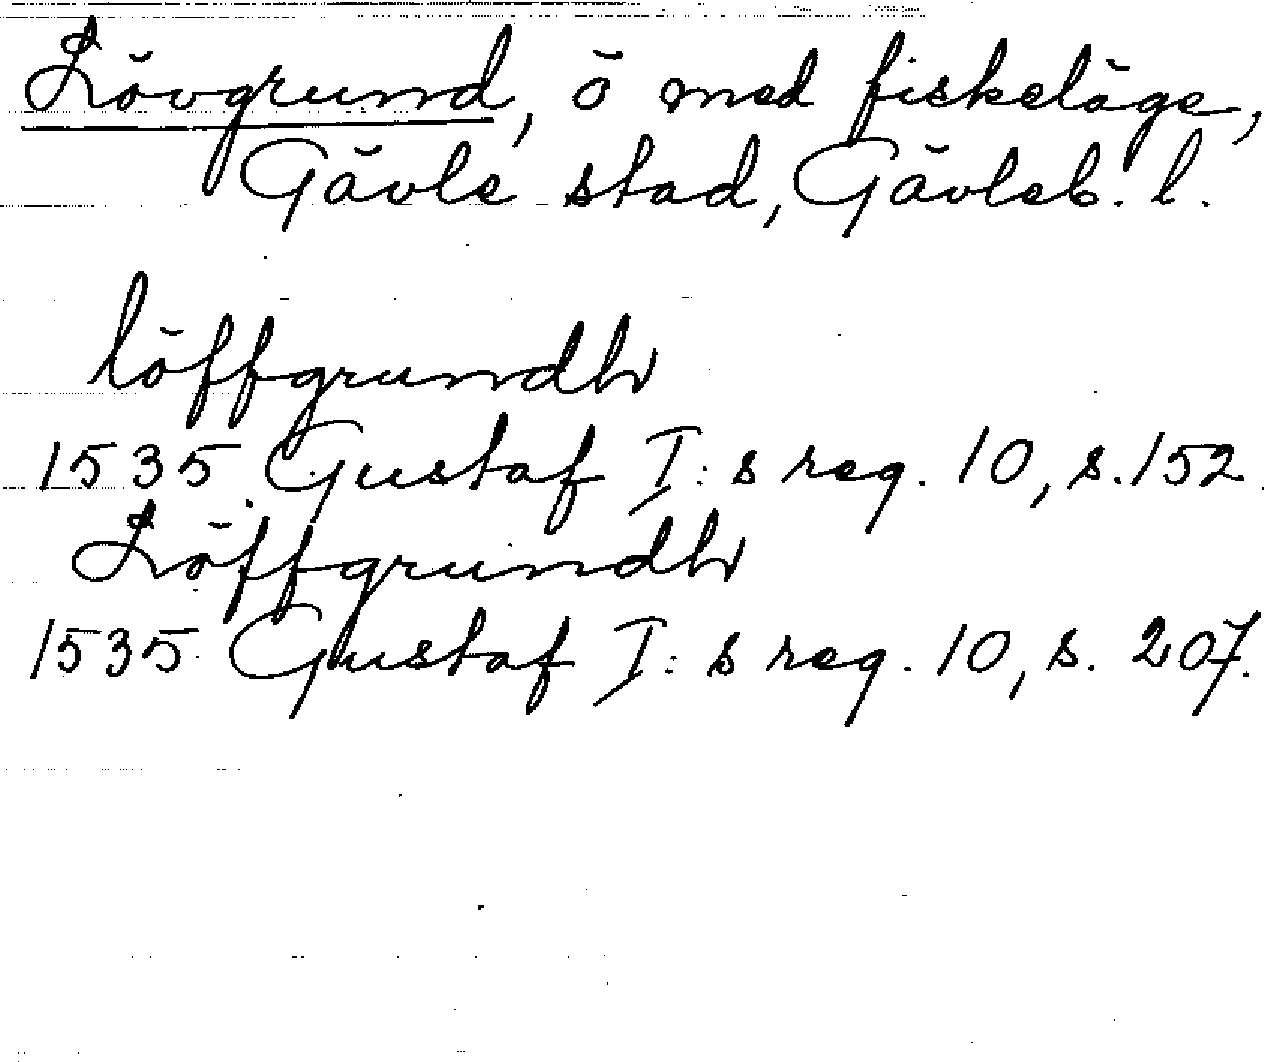 Lövgrund, ö med fiskeläge,
Gävle stad, Gävleb. l.
löffgrundh
1535 Gustaf I:s reg. 10, s. 152.
Löffgrundh
1535 Gustaf I:s reg. 10, s. 207.